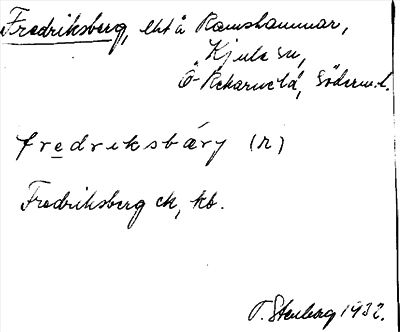 Fredriksberg, lht å Ramshammar,
Kjula sn,
Ö-Rekarne hd, Söderm.l.
fredriksbärj (n)
Fredriksberg ek, kb.
T. Stenberg 1932.